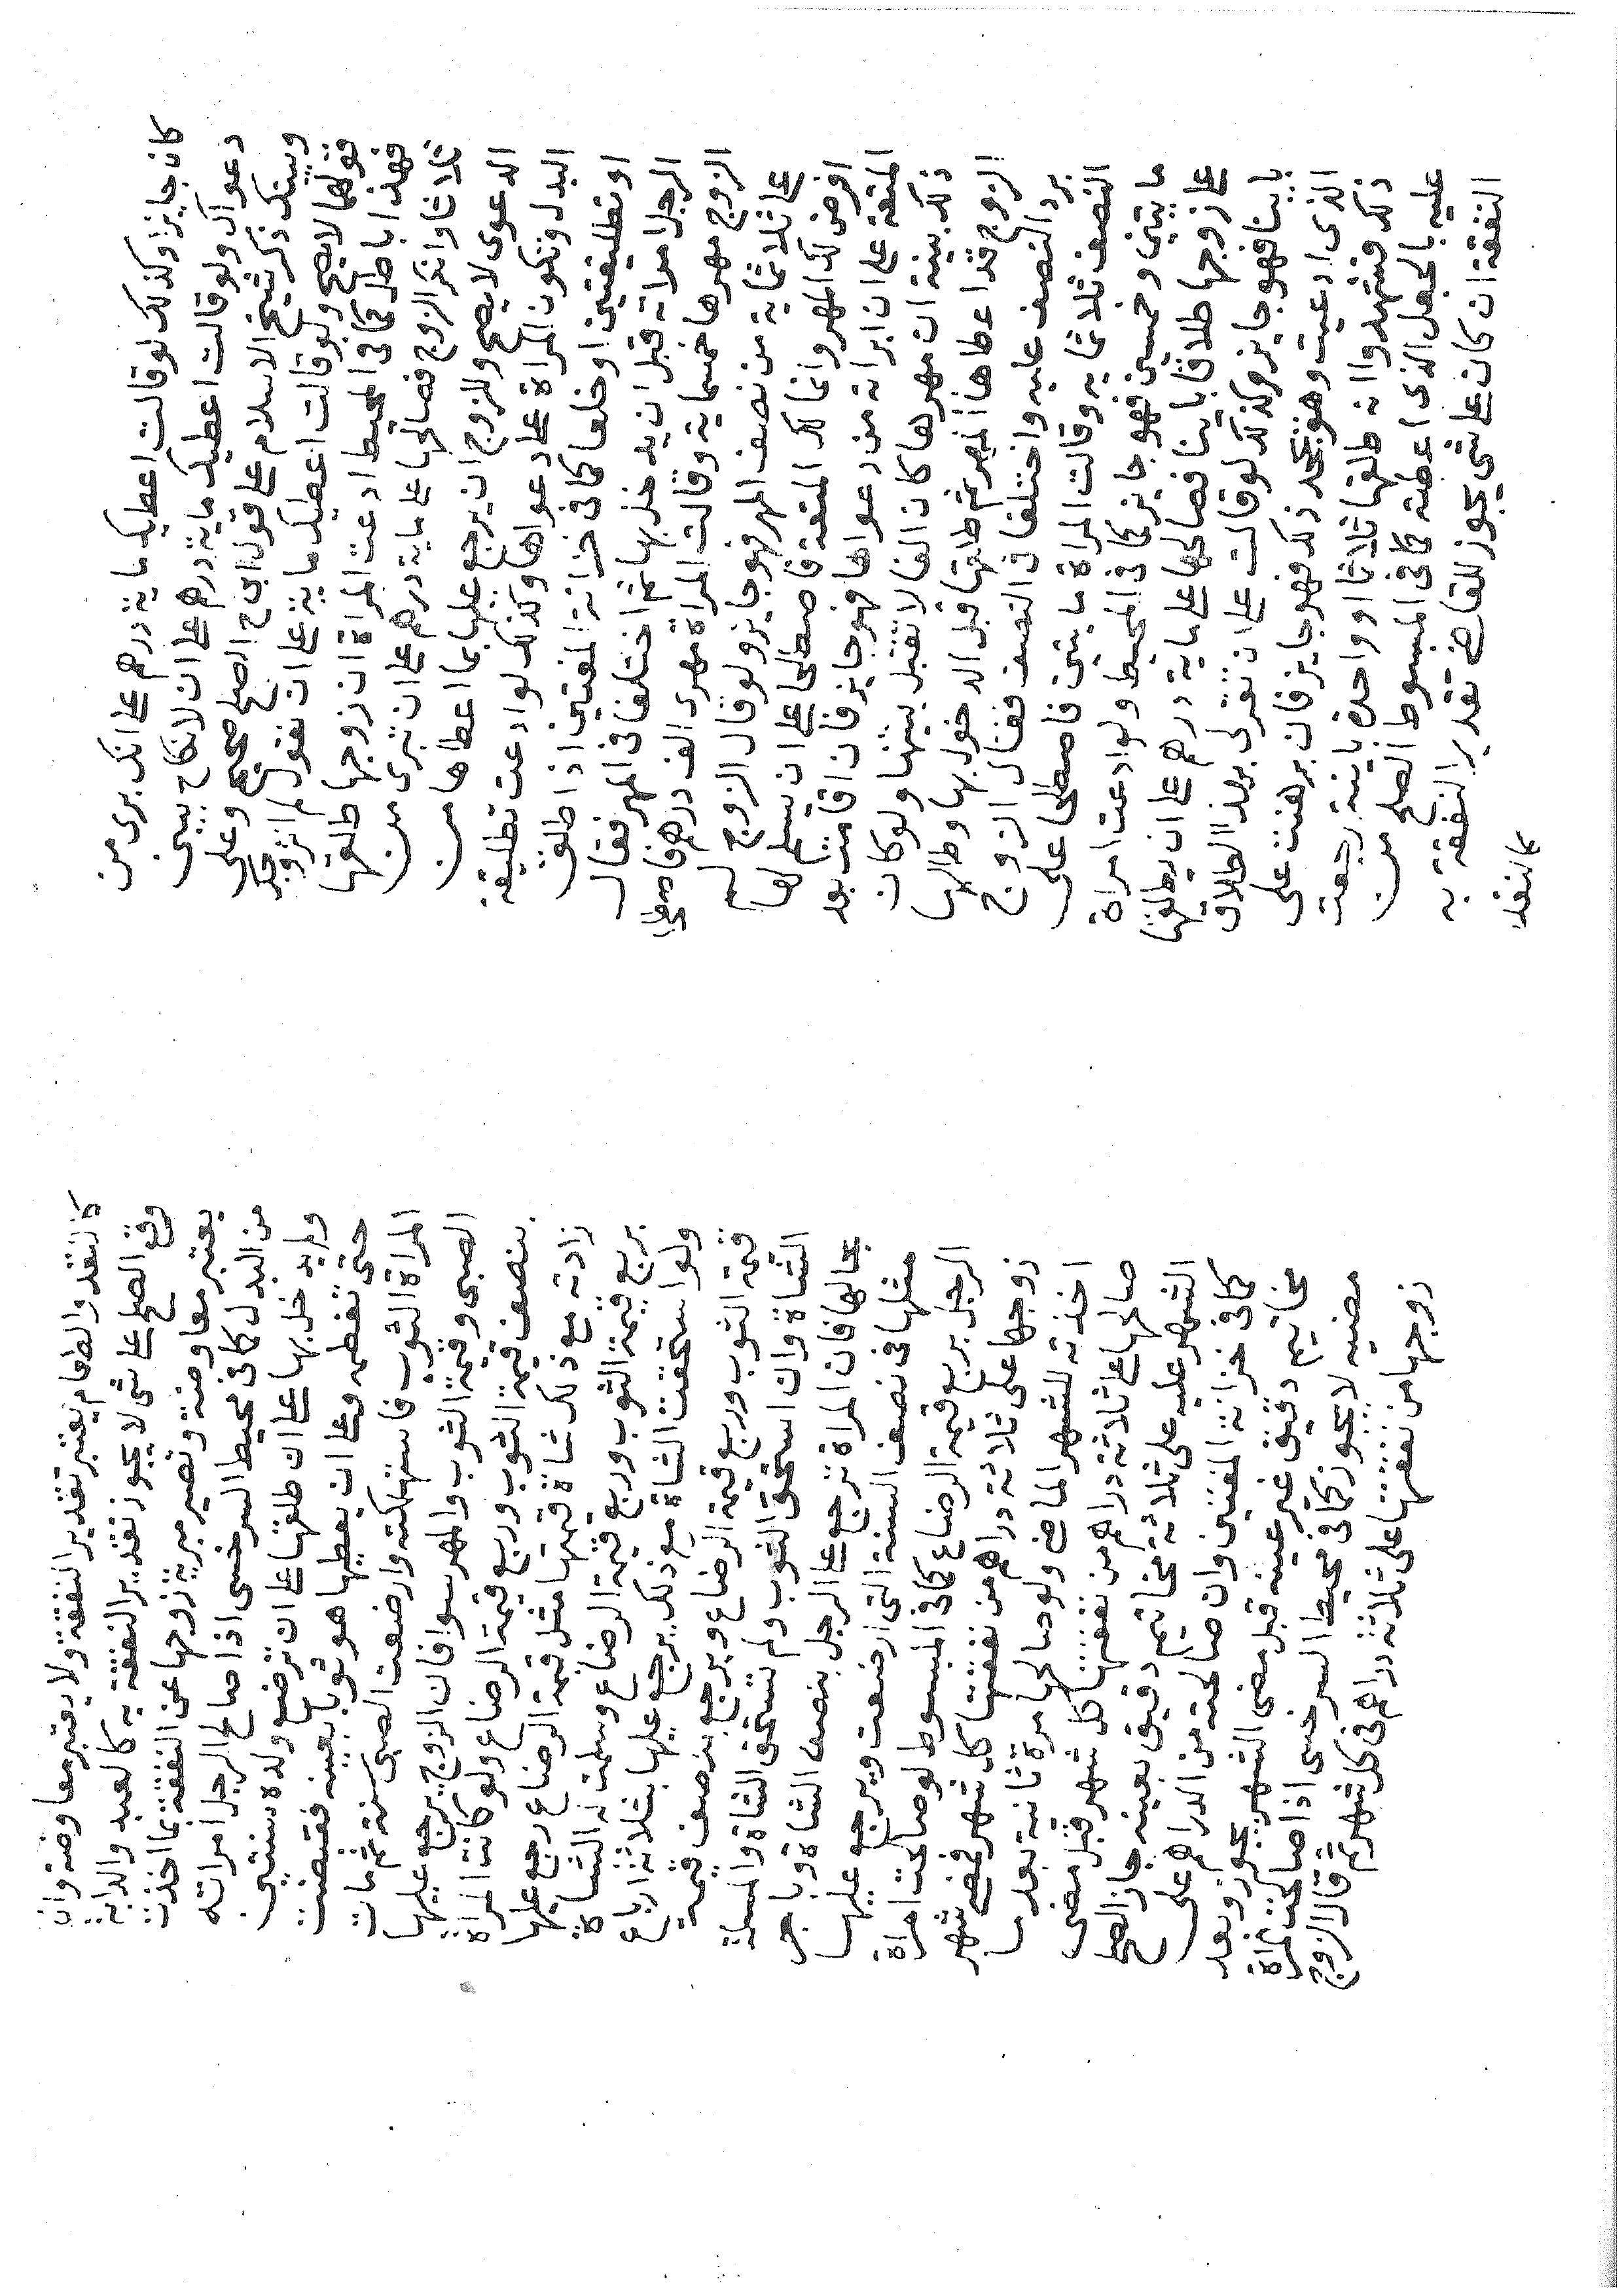 كان جايزا وكذلك لو قالت اعطيك ماية درهم على انك برى من
دعواك ولو قالت اعطيك ماية درهم على ان لا نكاح بيني
وبينك ذكر شيخ الاسلام على قول ابى ح الصلح صحيح وعلى
قولهما لا يصح ولو قالت اعطيك ماية على ان تقول لم اتزوجك
فهذا باطل كما فى المحيط ادعت المراة ان زوجها طلقها
ثلاثا وانكر الزوج فصالحها على ماية درهم على ان تبرى من
الدعوى لا يصح وللزوج ان يرجع عليها بما اعطاها من
البدل وتكون المراة على دعواها وكذلك لو ادعت تطليقة
او تطليقتين او خلعا كما فى خزانة المفتيين اذا طلق
الرجل امراته قبل ان يدخل بها ثم اختلفا فى المهر فقال
الزوج مهرها خمسماية وقالت المراة مهرى الف درهم فاصطلحا
على ثلاثماية من نصف المهر فهو جايز ولو قال الزوج لم
افرض لك المهر وانما لك المتعة فاصطلحا على ان يسلم لها
المتعة على ان ابراته من دعواها فهو جايز فان اقامت بعد
ذلك بينة ان مهرها كان الفا لا تقبل بينتها ولو كان
الزوج قد اعطاها المهر ثم طلقها قبل الدخول بها وطالبها
برد النصف عليه واختلفا فى النصف فقال الزوج
النصف ثلاثمايه وقالت المراة مايتين فاصطلحا على
مايتين وخمسين فهو جايز كما فى المحيط ولو ادعت امراة
على زوجها طلاقا باينا فصالحها على ماية درهم على ان يطلقها
باينا فهو جايز وكذلك لو قالت على ان تقر لى بهذا الطلاق
الذى ادعيت وهو يجحد ذلك فهو جايز فان برهنت على
ذلك وشهدوا انه طلقها ثلاثا او واحدة باينة رجعت
عليه بالجعل الذى اعطته كما فى المبسوط الصلح من
النفقة ان كان على شى يجوز للقاضى تقدير النفقة به
كالنقد
كالنقد والطعام يعتبر تقدير النفقة ولا يعتبر معاوضة وان
وقع الصلح على شى لا يجوز تقدير النفقة به كالعبد والدابة
يعتبر معاوضة وتصير مبرية زوجها عن النفقة بما اخذت
من البدل كما فى محيط السرخسى اذا صالح الرجل امراته
ولم يدخل بها على ان طلقها على ان ترضع ولده سنتين
حتى تفطمه وعلى ان يعطيها هو ثوبا بعينه فقبضت
المراة الثوب فاستهلكته وارضعت الصبى سنة ثم مات
الصبى وقيمة الثوب والمهر سوا فان الزوج يرجع عليها
بنصف قيمة الثوب وربع قيمة الرضاع ولو كانت المراة
زادته مع ذلك شاة قيمتها مثل قيمة الرضاع رجع عليها
بربع قيمة الثوب وربع قيمة الرضاع وسلمت له الشاة
ولو استحقت الشاة مع ذلك يرجع عليها بثلاثة ارباع
قيمة الثوب وربع قيمة الرضاع ويرجع بنصف قيمة
الشاة وان استحق الثوب ولم تستحق الشاة والمسلة
بحالها فان المراة ترجع على الرجل بنصف الشاة وباجر
مثلها فى نصف السنة التى ارضعت ويرجع عليها
الرجل بربع قيمة الرضاع كما فى المبسوط لو صالحت امراة
زوجها على ثلاثة دراهم من نفقتها كل شهر فمضى شهر
اخذته للشهر الماضى ولو صالحها مرة ثانية بعد ما
صالحها على ثلاثة دراهم من نفقتها كل شهر قبل مضى
الشهر عليه على ثلاثة مخاتيم دقيق بعينه جاز الصلح
كما فى خزانة المفتين وان صالحته من الدراهم على
مخاتيم دقيق غير عينه قبل مضى الشهر يجوز وبعد
مضيه لا يجوز كما فى محيط السرخسى اذا صالحت المراة
زوجها من نفقتها على ثلاثة دراهم فى كل شهر ثم قال الزوج